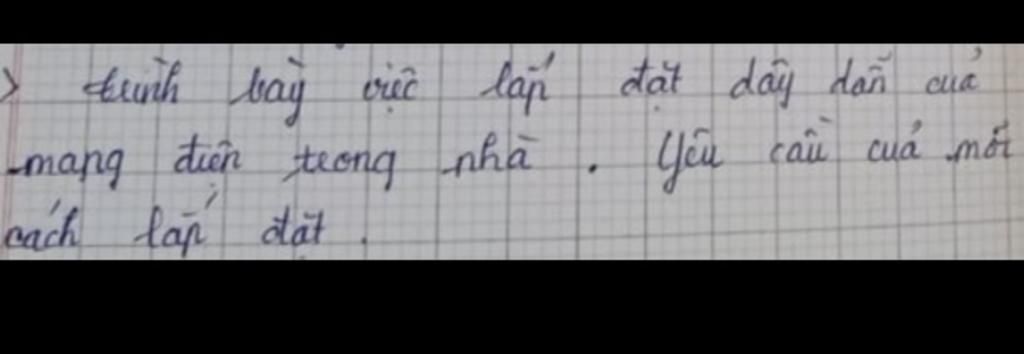 > trình bày việc lắp đặt dây dẫn của
mạng điện trong nhà. Yêu cầu của mỗi
cách lắp đặt.